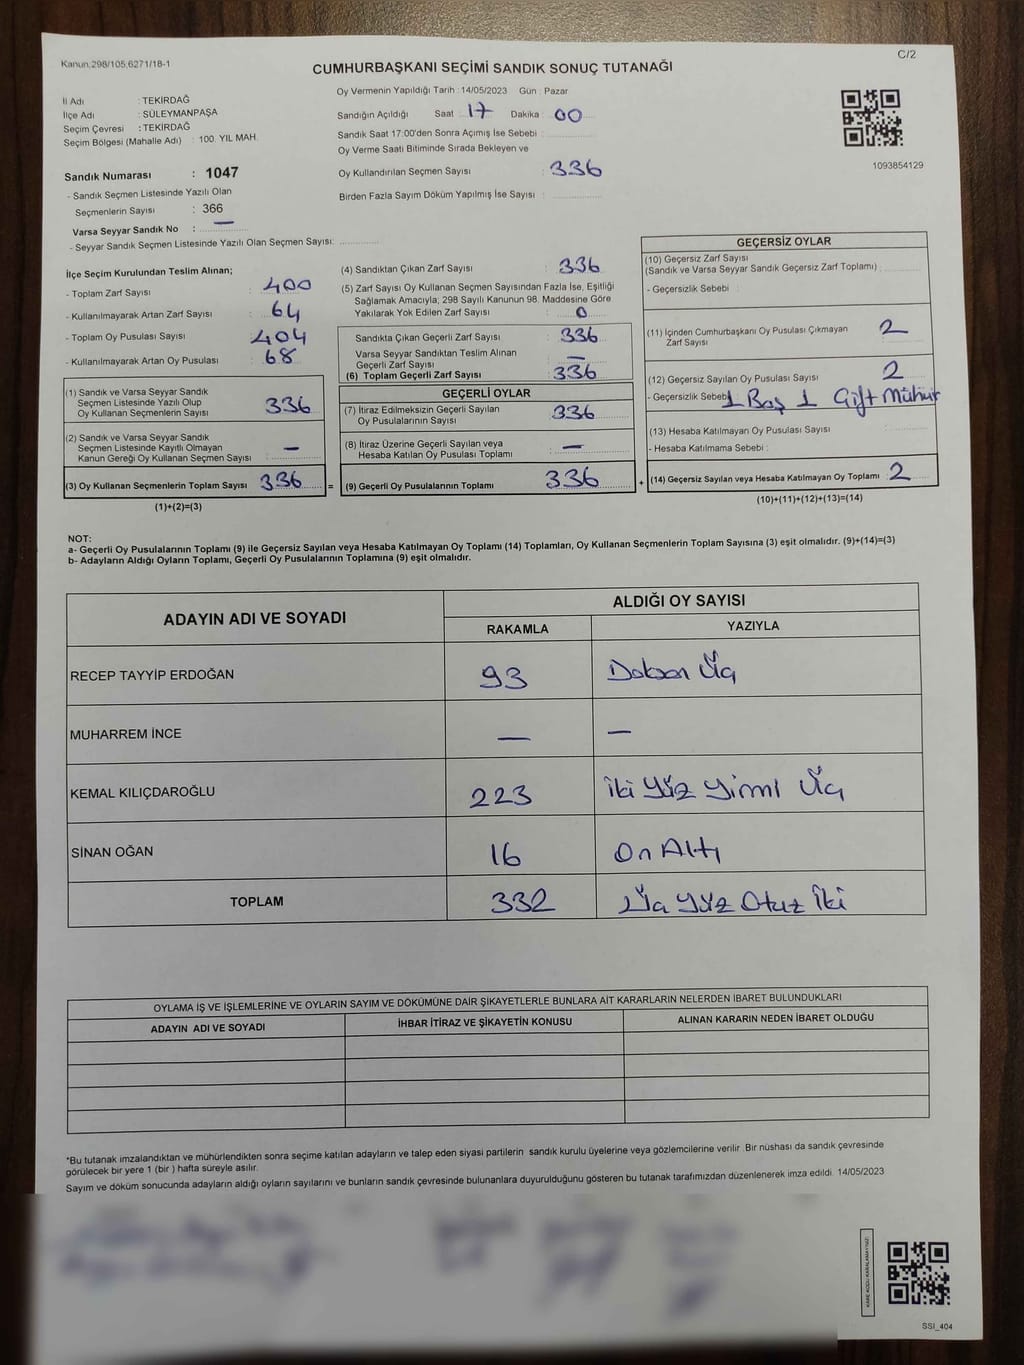 Kanun;298/105,6271/18-1
C/2
CUMHURBAŞKANI SEÇİMİ SANDIK SONUÇ TUTANAĞI
İl Adı : TEKİRDAĞ
İlçe Adı : SÜLEYMANPAŞA
Seçim Çevresi : TEKİRDAĞ
Seçim Bölgesi (Mahalle Adı) : 100. YIL MAH.
Oy Vermenin Yapıldığı Tarih : 14/05/2023 Gün : Pazar
Sandığın Açıldığı Saat 17 Dakika 00
Sandık Saat 17:00'den Sonra Açımış İse Sebebi :
Oy Verme Saati Bitiminde Sırada Bekleyen ve
Oy Kullandırılan Seçmen Sayısı : 336
Birden Fazla Sayım Döküm Yapılmış İse Sayısı :
1093854129
Sandık Numarası : 1047
- Sandık Seçmen Listesinde Yazılı Olan
Seçmenlerin Sayısı : 366
Varsa Seyyar Sandık No : —
- Seyyar Sandık Seçmen Listesinde Yazılı Olan Seçmen Sayısı:
İlçe Seçim Kurulundan Teslim Alınan;
- Toplam Zarf Sayısı : 400
- Kullanılmayarak Artan Zarf Sayısı : 64
- Toplam Oy Pusulası Sayısı : 404
- Kullanılmayarak Artan Oy Pusulası : 68
(1) Sandık ve Varsa Seyyar Sandık
Seçmen Listesinde Yazılı Olup
Oy Kullanan Seçmenlerin Sayısı 336
(2) Sandık ve Varsa Seyyar Sandık
Seçmen Listesinde Kayıtlı Olmayan
Kanun Gereği Oy Kullanan Seçmen Sayısı —
(3) Oy Kullanan Seçmenlerin Toplam Sayısı 336 =
(1)+(2)=(3)
(4) Sandıktan Çıkan Zarf Sayısı : 336
(5) Zarf Sayısı Oy Kullanan Seçmen Sayısından Fazla İse, Eşitliği
Sağlamak Amacıyla; 298 Sayılı Kanunun 98. Maddesine Göre
Yakılarak Yok Edilen Zarf Sayısı : 0
Sandıkta Çıkan Geçerli Zarf Sayısı : 336
Varsa Seyyar Sandıktan Teslim Alınan
Geçerli Zarf Sayısı : —
(6) Toplam Geçerli Zarf Sayısı : 336
GEÇERLİ OYLAR
(7) İtiraz Edilmeksizin Geçerli Sayılan
Oy Pusulalarının Sayısı : 336
(8) İtiraz Üzerine Geçerli Sayılan veya
Hesaba Katılan Oy Pusulası Toplamı : —
(9) Geçerli Oy Pusulalarının Toplamı 336 +
GEÇERSİZ OYLAR
(10) Geçersiz Zarf Sayısı
(Sandık ve Varsa Seyyar Sandık Geçersiz Zarf Toplamı) :
- Geçersizlik Sebebi :
(11) İçinden Cumhurbaşkanı Oy Pusulası Çıkmayan
Zarf Sayısı 2
(12) Geçersiz Sayılan Oy Pusulası Sayısı 2
- Geçersizlik Sebebi 1 Boş 1 Çift Mühür
(13) Hesaba Katılmayan Oy Pusulası Sayısı
- Hesaba Katılmama Sebebi :
(14) Geçersiz Sayılan veya Hesaba Katılmayan Oy Toplamı : 2
(10)+(11)+(12)+(13)=(14)
NOT:
a- Geçerli Oy Pusulalarının Toplamı (9) ile Geçersiz Sayılan veya Hesaba Katılmayan Oy Toplamı (14) Toplamları, Oy Kullanan Seçmenlerin Toplam Sayısına (3) eşit olmalıdır. (9)+(14)=(3)
b- Adayların Aldığı Oyların Toplamı, Geçerli Oy Pusulalarının Toplamına (9) eşit olmalıdır.
ADAYIN ADI VE SOYADI
ALDIĞI OY SAYISI
RAKAMLA YAZIYLA
RECEP TAYYİP ERDOĞAN 93 Doksan Üç
MUHARREM İNCE — —
KEMAL KILIÇDAROĞLU 223 İki Yüz Yirmi Üç
SİNAN OĞAN 16 On Altı
TOPLAM 332 Üç Yüz Otuz İki
OYLAMA İŞ VE İŞLEMLERİNE VE OYLARIN SAYIM VE DÖKÜMÜNE DAİR ŞİKAYETLERLE BUNLARA AİT KARARLARIN NELERDEN İBARET BULUNDUKLARI
ADAYIN ADI VE SOYADI İHBAR İTİRAZ VE ŞİKAYETİN KONUSU ALINAN KARARIN NEDEN İBARET OLDUĞU
*Bu tutanak imzalandıktan ve mühürlendikten sonra seçime katılan adayların ve talep eden siyasi partilerin sandık kurulu üyelerine veya gözlemcilerine verilir .Bir nüshası da sandık çevresinde
görülecek bir yere 1 (bir ) hafta süreyle asılır.
Sayım ve döküm sonucunda adayların aldığı oyların sayılarını ve bunların sandık çevresinde bulunanlara duyurulduğunu gösteren bu tutanak tarafımızdan düzenlenerek imza edildi. 14/05/2023
KARE KODU KARALAMAYINIZ!
SSI_404